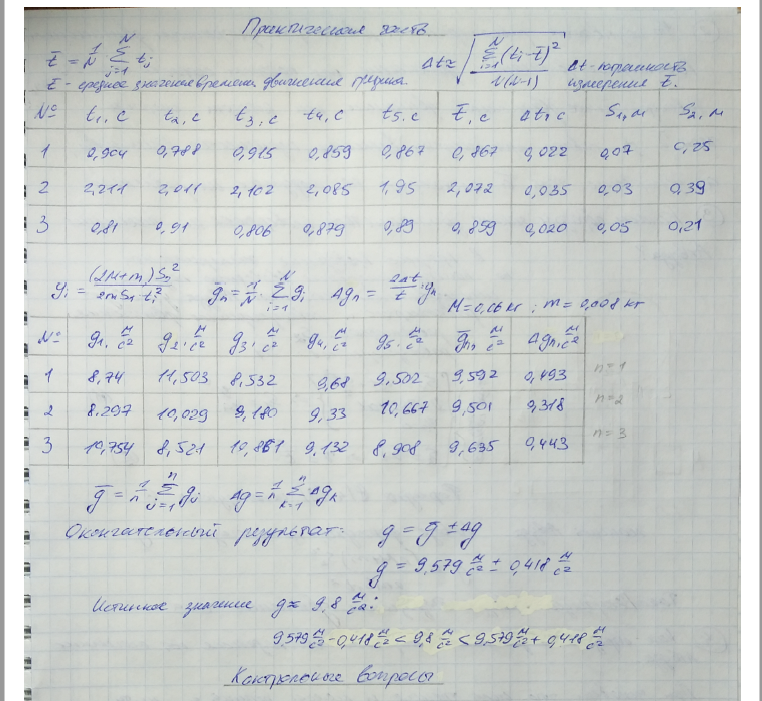 Практическая часть
t̄ = 1/N ∑ᵢ₌₁ᴺ tᵢ Δt ≈ √(∑ᵢ₌₁ᴺ (tᵢ - t̄)² / N(N-1)) Δt - погрешность
t̄ - среднее значение времени движения груза. измерения t̄.
№ t₁, с t₂, с t₃, с t₄, с t₅, с t̄, с Δt, с S₁, м S₂, м
1 0,904 0,788 0,915 0,859 0,867 0,867 0,022 0,07 0,25
2 2,211 2,011 2,102 2,085 1,95 2,072 0,035 0,03 0,39
3 0,81 0,91 0,806 0,879 0,89 0,859 0,020 0,05 0,21
gᵢ = (2M+m)S₂² / 2mS₁tᵢ² ḡₙ = 1/N ∑ᵢ₌₁ᴺ gᵢ Δgₙ = 2Δt/t̄ · ḡₙ
M = 0,06 кг ; m = 0,008 кг
№ g₁, м/с² g₂, м/с² g₃, м/с² g₄, м/с² g₅, м/с² ḡₙ, м/с² Δgₙ, м/с²
1 8,74 11,503 8,532 9,68 9,502 9,592 0,493 n=1
2 8,297 10,029 9,180 9,33 10,667 9,501 0,318 n=2
3 10,754 8,521 10,861 9,132 8,908 9,635 0,443 n=3
ḡ = 1/n ∑ⱼ₌₁ⁿ gⱼ Δg = 1/n ∑ₖ₌₁ⁿ Δgₖ
Окончательный результат: g = ḡ ± Δg
g = 9,579 м/с² ± 0,418 м/с²
Истинное значение g ≈ 9,8 м/с²:
9,579 м/с² - 0,418 м/с² < 9,8 м/с² < 9,579 м/с² + 0,418 м/с²
Контрольные вопросы